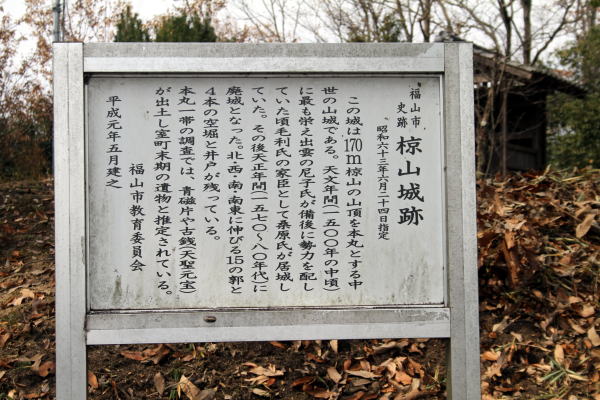 福山市
史跡
椋山城跡
昭和六十三年六月二十四日指定
この城は170m椋山の山頂を本丸とする中
世の山城である。天文年間(一五〇〇年の中頃)
に最も栄え出雲の尼子氏が備後に勢力を配し
ていた頃毛利氏の家臣として桑原氏が居城し
ていた。その後天正年間(一五七〇~八〇年代)に
廃城となった。北・西・南・南東に伸びる15の郭と
4本の空堀と井戸が残っている。
本丸一帯の調査では、青磁片や古銭(天聖元宝)
が出土し室町末期の遺物と推定されている。
平成元年五月建之
福山市教育委員会